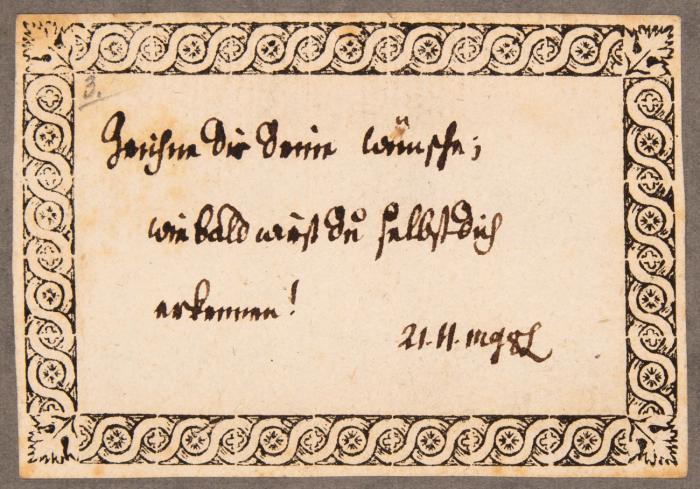 3.
Zeichne Dir Deine Wünsche;
wie bald wirst Du selbst dich
erkennen!